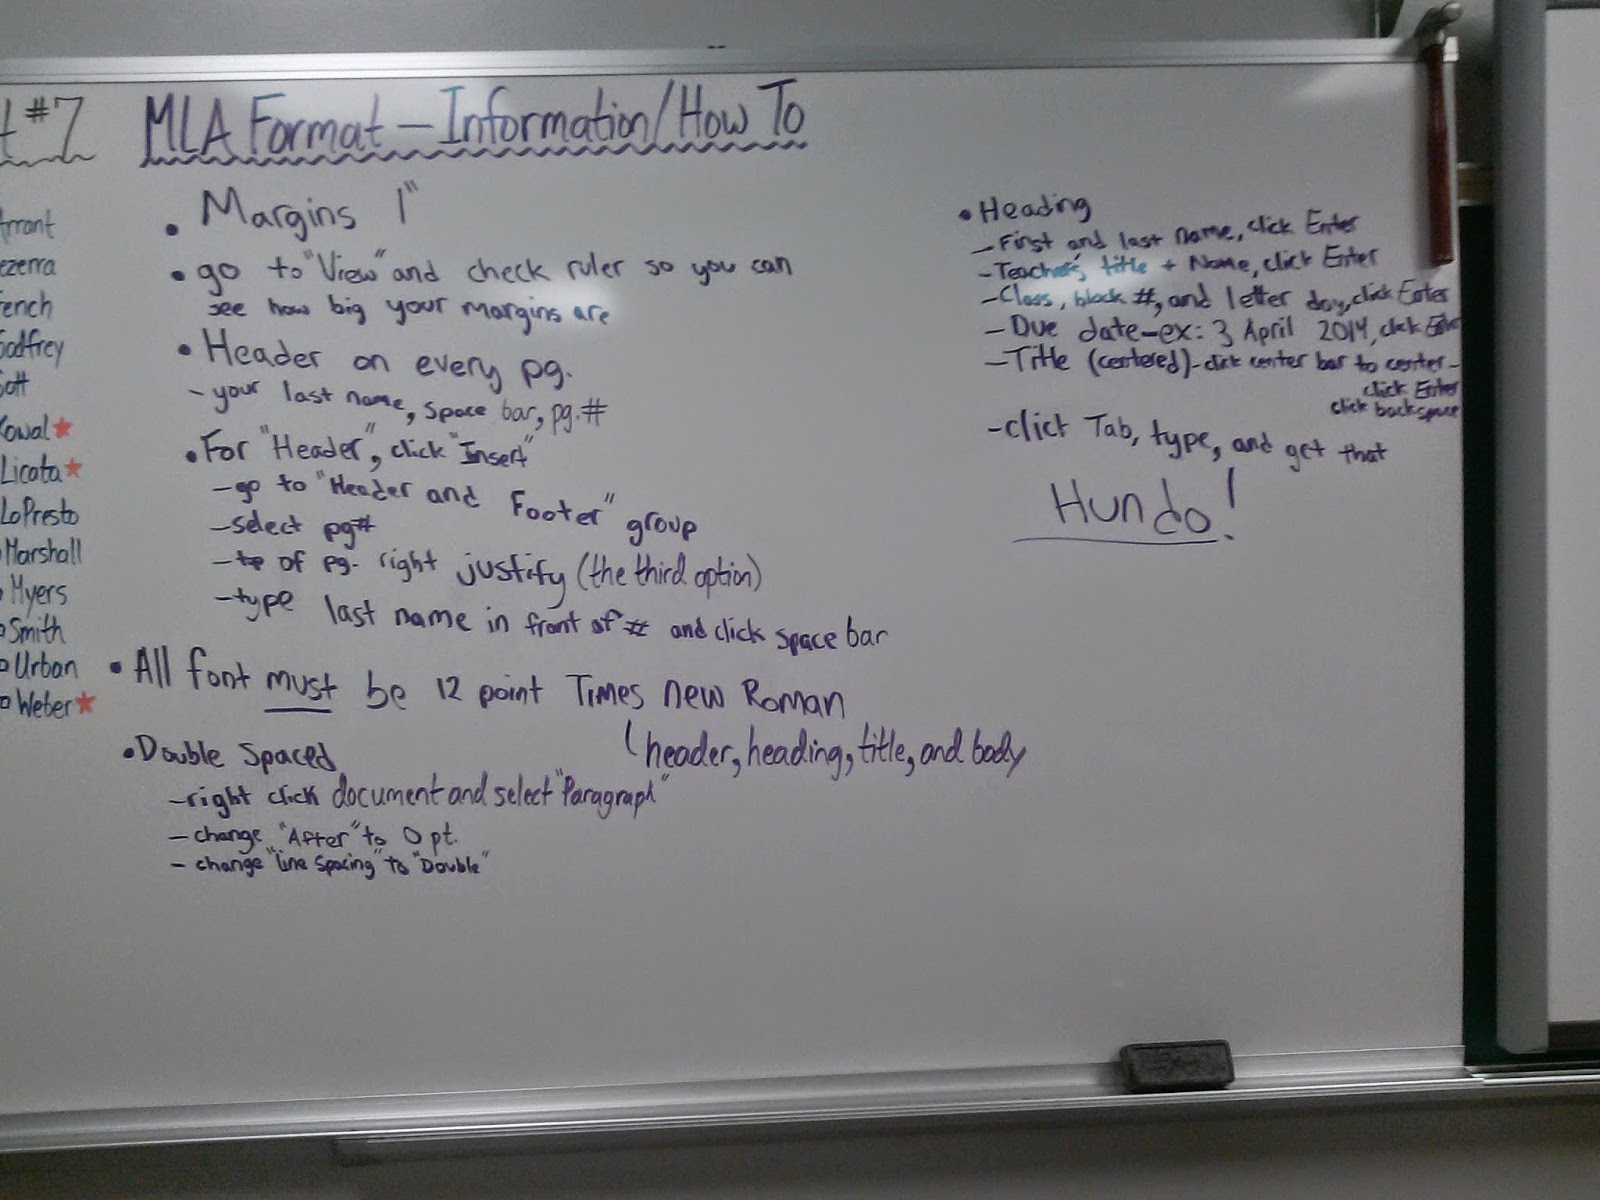 t #7
MLA Format – Information/How To
errant
ezerra
rench
odfrey
ott
Kowal
Licata
LoPresto
Marshall
Myers
Smith
Urban
Weber
• Margins 1"
• go to "View" and check ruler so you can
see how big your margins are
• Header on every pg.
- your last name, space bar, pg. #
• For "Header", click "Insert"
- go to "Header and Footer" group
- select pg#
- of pg. right justify (the third option)
- type last name in front of # and click space bar
• All font must be 12 point Times new Roman
(header, heading, title, and body
• Double Spaced
- right click document and select "Paragraph"
- change "After" to 0 pt.
- change "line spacing" to "Double"
• Heading
- First and last name, click Enter
- Teacher's title + Name, click Enter
- Class, block #, and letter day, click Enter
- Due date - ex: 3 April 2014, click Enter
- Title (centered) - click center bar to center -
click Enter
click backspace
- click Tab, type, and get that
Hundo!